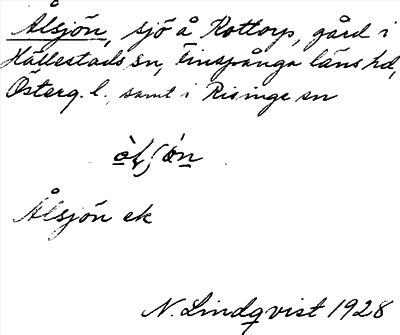 Ålsjön, sjö å Rottorp, gård i
Hällestads sn, Finspånga läns hd,
Österg. l., samt i Risinge sn
Ålsjön ek
N. Lindqvist 1928